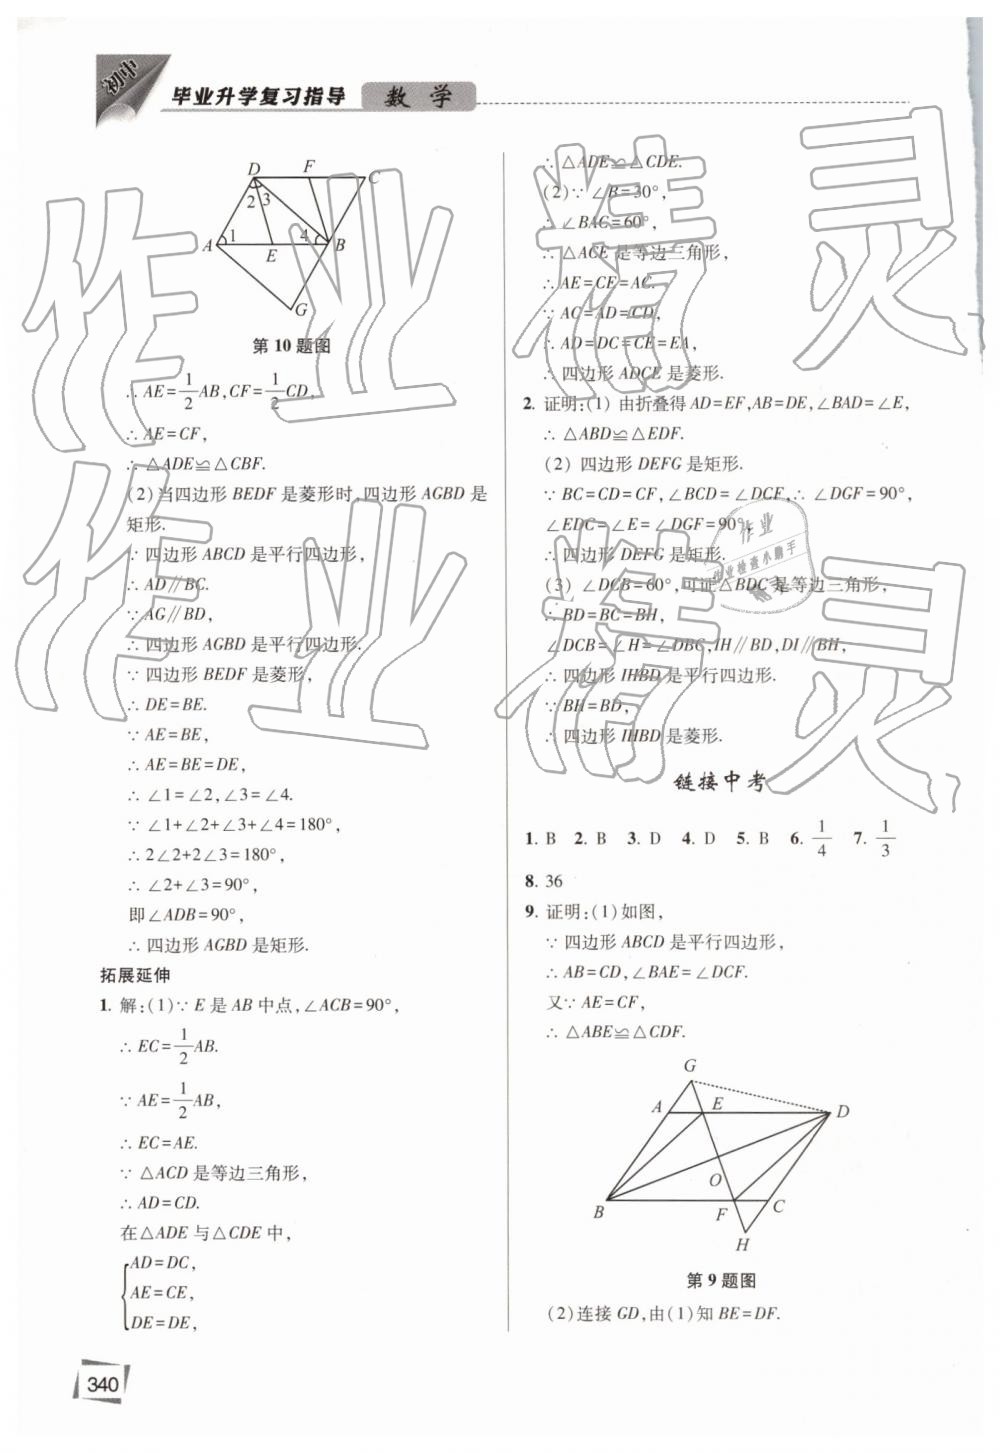 初中
毕业升学复习指导 数 学
D F C
2 3
A 1 4 B
E
G
第10题图
∴ AE=1/2AB,CF=1/2CD,
∴ AE=CF,
∴ △ADE≌△CBF.
(2)当四边形 BEDF 是菱形时,四边形 AGBD 是
矩形.
∵ 四边形 ABCD 是平行四边形,
∴ AD∥BC.
∵ AG∥BD,
∴ 四边形 AGBD 是平行四边形.
∵ 四边形 BEDF 是菱形,
∴ DE=BE.
∵ AE=BE,
∴ AE=BE=DE,
∴ ∠1=∠2,∠3=∠4.
∵ ∠1+∠2+∠3+∠4=180°,
∴ 2∠2+2∠3=180°,
∴ ∠2+∠3=90°,
即∠ADB=90°,
∴ 四边形 AGBD 是矩形.
拓展延伸
1. 解:(1)∵ E 是 AB 中点,∠ACB=90°,
∴ EC=1/2AB.
∵ AE=1/2AB,
∴ EC=AE.
∵ △ACD 是等边三角形,
∴ AD=CD.
在△ADE 与△CDE 中,
AD=DC,
AE=CE,
DE=DE,
∴ △ADE≌△CDE.
(2)∵ ∠B=30°,
∴ ∠BAC=60°,
∴ △ACE 是等边三角形,
∴ AE=CE=AC.
∵ AC=AD=CD,
∴ AD=DC=CE=EA,
∴ 四边形 ADCE 是菱形.
2. 证明:(1) 由折叠得 AD=EF,AB=DE,∠BAD=∠E,
∴ △ABD≌△EDF.
(2) 四边形 DEFG 是矩形.
∵ BC=CD=CF,∠BCD=∠DCF,∴ ∠DGF=90°,
∠EDC=∠E=∠DGF=90°,
∴ 四边形 DEFG 是矩形.
(3) ∠DCB=60°,可证△BDC 是等边三角形,
∴ BD=BC=BH,
∠DCB=∠H=∠DBC,IH∥BD,DI∥BH,
∴ 四边形 IHBD 是平行四边形.
∵ BH=BD,
∴ 四边形 IHBD 是菱形.
链接中考
1. B 2. B 3. D 4. D 5. B 6. 1/4 7. 1/3
8. 36
9. 证明:(1)如图,
∵ 四边形 ABCD 是平行四边形,
∴ AB=CD,∠BAE=∠DCF.
又∵ AE=CF,
∴ △ABE≌△CDF.
G
A E D
O
B F C
H
第9题图
(2)连接 GD,由(1)知 BE=DF.
340
作业精灵
作业精灵
作业
作业检查小助手